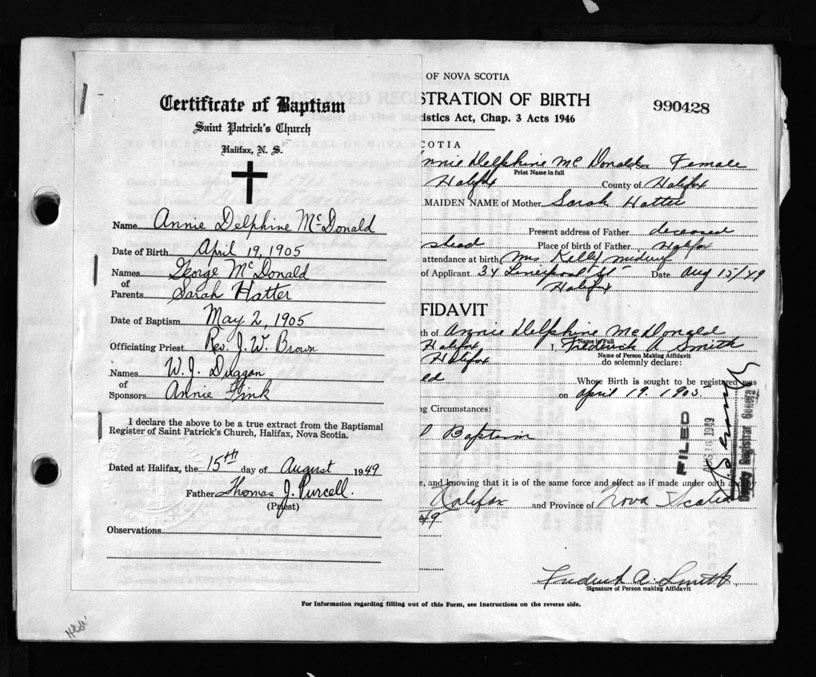 Certificate of Baptism
Saint Patrick's Church
Halifax, N. S.
Name Annie Delphine McDonald
Date of Birth April 19, 1905
Names George McDonald
of
Parents Sarah Hatter
Date of Baptism May 2, 1905
Officiating Priest Rev. J. W. Brown
Names W. J. Duggan
of
Sponsors Annie Fink
I declare the above to be a true extract from the Baptismal
Register of Saint Patrick's Church, Halifax, Nova Scotia.
Dated at Halifax, the 15th day of August 1949
Father Thomas J. Purcell.
(Priest)
Observations
OF NOVA SCOTIA
STRATION OF BIRTH
990428
istics Act, Chap. 3 Acts 1946
OTIA
nnie Delphine McDonald Female
Print Name in full
Halifax County of Halifax
MAIDEN NAME of Mother Sarah Hatter
Present address of Father deceased
stead Place of birth of Father Halifax
attendance at birth Mrs Kelly midwif
of Applicant 34 Liverpool St Date Aug 15/49
Halifax
FFIDAVIT
th of Annie Delphine McDonald
Name in Full
Halifax I, Frederick A Smith
Name of Person Making Affidavit
Halifax do solemnly declare:
ed Whose Birth is sought to be registered was
on April 19. 1905
ng Circumstances:
Baptism
FILED
Deputy Registrar General
e, and knowing that it is of the same force and effect as if made under oath and by
Halifax and Province of Nova Scotia
49
Fredrick A. Smith
Signature of Person making Affidavit
For Information regarding filling out of this Form, see Instructions on the reverse side.